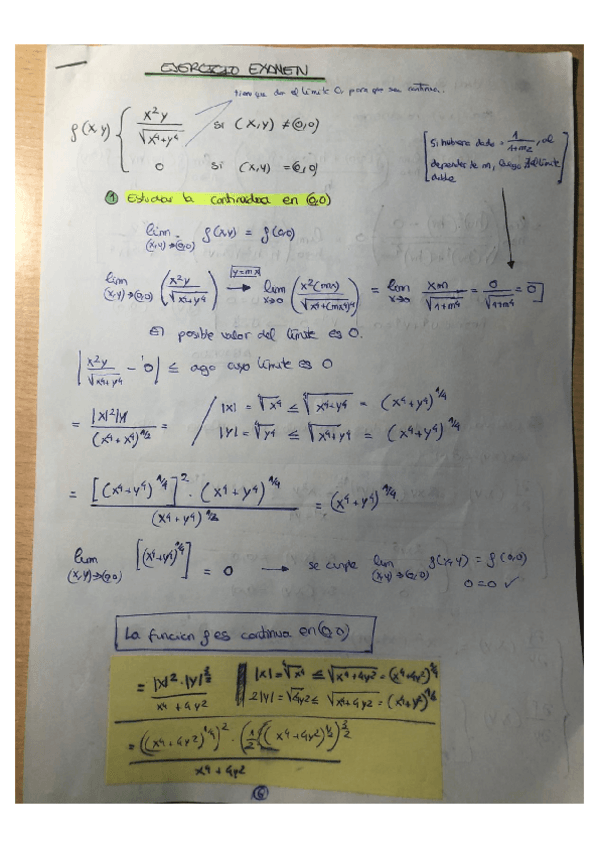 EJERCICIO EXAMEN
tiene que dar el límite 0, para que sea continua.
f(x,y) { x²y / √(x⁴+y⁴) si (x,y) ≠ (0,0)
0 si (x,y) = (0,0)
[Si hubiera dado = 1/(1+m²), al
depende de m, luego ∄ el límite
doble]
① Estudiar la continuidad en (0,0)
lim (x,y)→(0,0) f(x,y) = f(0,0)
lim (x,y)→(0,0) (x²y / √(x⁴+y⁴)) y=mx → lim x→0 (x²(mx) / √(x⁴+(mx)⁴)) = lim x→0 xm / √(1+m⁴) = 0 / √(1+m⁴) = 0]
El posible valor del límite es 0.
| x²y / √(x⁴+y⁴) - 0 | ≤ algo cuyo límite es 0
= |x|²|y| / (x⁴+x⁴)^1/2 = / |x| = ⁴√x⁴ ≤ ⁴√(x⁴+y⁴) = (x⁴+y⁴)^1/4
|y| = ⁴√y⁴ ≤ ⁴√(x⁴+y⁴) = (x⁴+y⁴)^1/4
= [(x⁴+y⁴)^1/4]² · (x⁴+y⁴)^1/4 / (x⁴+y⁴)^1/2 = (x⁴+y⁴)^1/4
lim (x,y)→(0,0) [(x⁴+y⁴)^1/4] = 0 → se cumple lim (x,y)→(0,0) f(x,y) = f(0,0)
0=0 ✓
La función f es continua en (0,0)
= |x|²·|y|^3/2 / x⁴+4y² || |x| = ⁴√x⁴ ≤ ⁴√(x⁴+4y²) = (x⁴+4y²)^1/4
2|y| = √4y² ≤ √(x⁴+4y²) = (x⁴+4y²)^1/2
= ((x⁴+4y²)^1/4)² · (1/2 (x⁴+4y²)^1/2)^3/2 / x⁴+4y²